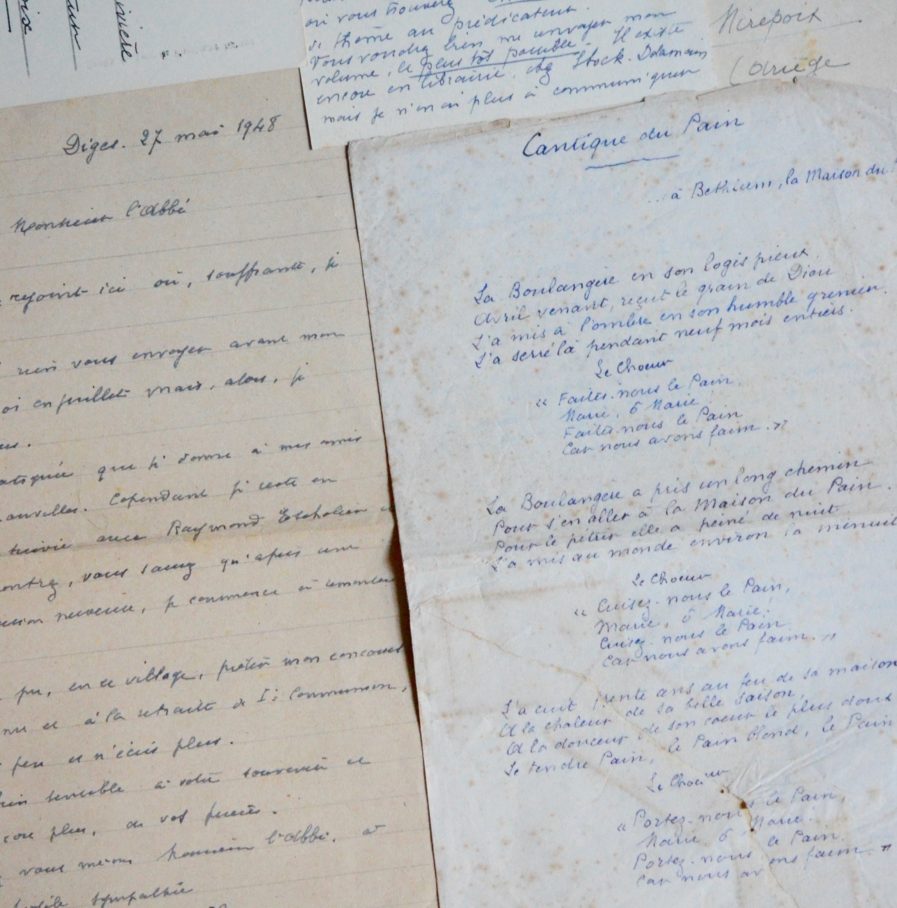 ivière
où vous trouverez
de thème au prédicateur.
Vous voudrez bien me renvoyer mon
volume, le plus tôt possible. Il existe
encore en librairie, chez Stock. Delamain
mais je n'en ai plus à communiquer
Mirepoix
(Ariège
Diges. 27 mai 1948
Monsieur l'Abbé
rejoint ici où, souffrante, je
rien vous envoyer avant mon
en juillet mais, alors, je
que je donne à mes amis
Cependant je reste en
suivie avec Raymond Escholier
vous savez qu'après une
nerveuse, je commence à remonter
pu, en ce village, prêter mon concours
et à la retraite de 1è Communion,
peu et n'écris plus.
bien sensible à votre souvenir et
encore plus, de vos prières.
Monsieur l'Abbé, à
sympathie
Cantique du Pain
... à Bethléem, la Maison du
La Boulangère en son logis pieux,
Avril venant, reçut le grain de Dieu
L'a mis à l'ombre en son humble grenier,
L'a serré là pendant neuf mois entiers.
Le Choeur
« Faites-nous le Pain,
Marie, ô Marie!
Faites-nous le Pain
Car nous avons faim. »
La Boulangère a pris un long chemin
Pour s'en aller à la Maison du Pain.
Pour le pétrir elle a peiné de nuit
L'a mis au monde environ la minuit
Le Choeur
« Cuisez-nous le Pain,
Marie, ô Marie!
Cuisez-nous le Pain
Car nous avons faim. »
L'a cuit trente ans au feu de sa maison
A la chaleur de la belle saison,
A la douceur de son coeur le plus doux
Le tendre Pain, le Pain blond, le Pain
Le Choeur
« Portez-nous le Pain,
Marie ô Marie!
Portez-nous le Pain
Car nous avons faim. »